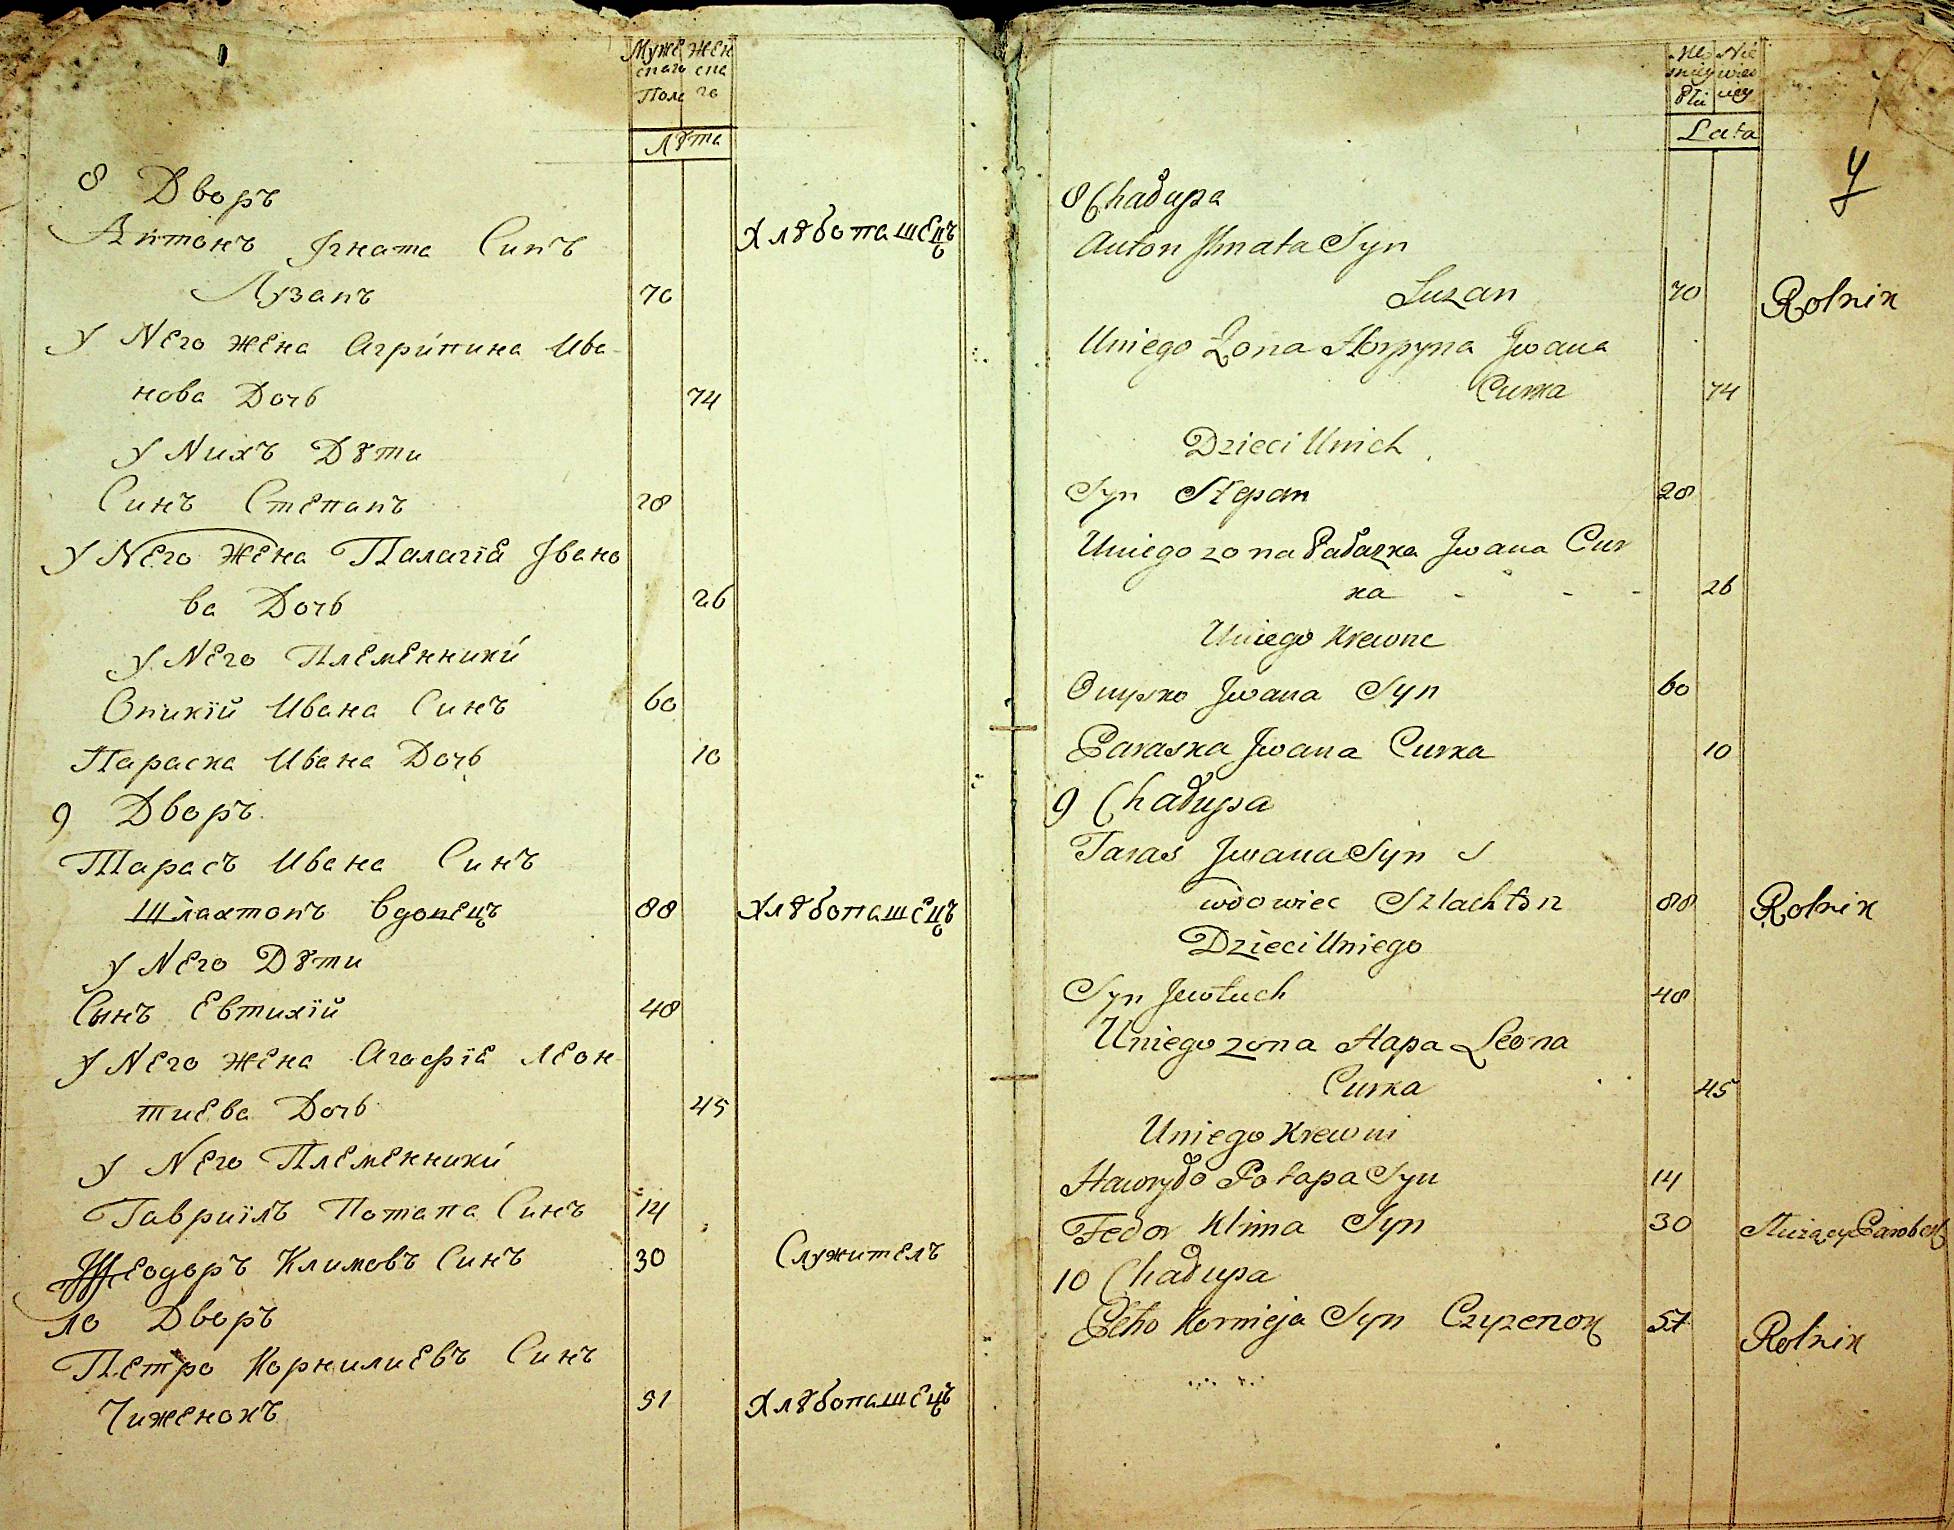 Муже Жен
скаго ска
Пола го
Лѣта
8 Дворъ
Антонъ Ігната Синъ Хлѣбопашецъ
Лузанъ 70
У Него жена Агрипина Ива
нова Дочь 74
У Нихъ Дѣти
Синъ Степанъ 28
У Него жена Палагія Івано
ва Дочь 26
У Него Племенники
Оникій Ивана Синъ 60
Параска Ивана Дочь 10
9 Дворъ
Тарасъ Ивана Синъ
Шлахтонъ вдовецъ 88 Хлѣбопашецъ
У Него Дѣти
Сынъ Евтихій 48
У Него жена Агафіе Леон
тиева Дочь 45
У Него Племенники
Гавриілъ Потапа Синъ 14
Феодоръ Климовъ Синъ 30 Служитель
10 Дворъ
Петро Корнилиевъ Синъ
Чиженокъ 51 Хлѣбопашецъ
Lata
4
8 Chałupa
Anton Ihnata Syn
Luzan 70 Rolnik
Uniego Żona Horpyna Jwana
Curka 74
Dzieci Unich
Syn Stepan 28
Uniego zona Pałazka Jwana Cur
ka - - - 26
Uniego Krewne
Onysko Jwana Syn 60
Paraska Jwana Curka 10
9 Chałupa
Taras Jwana Syn
wdowiec Szlachton 88 Rolnik
Dzieci Uniego
Syn Jewtuch 48
Uniego zona Hapa Leona
Curka 45
Uniego Krewni
Hawryło Potapa Syn 14
Fedor Klima Syn 30 Służący Parobek
10 Chałupa
Petro Kornieja Syn Czyzenok 51 Rolnik